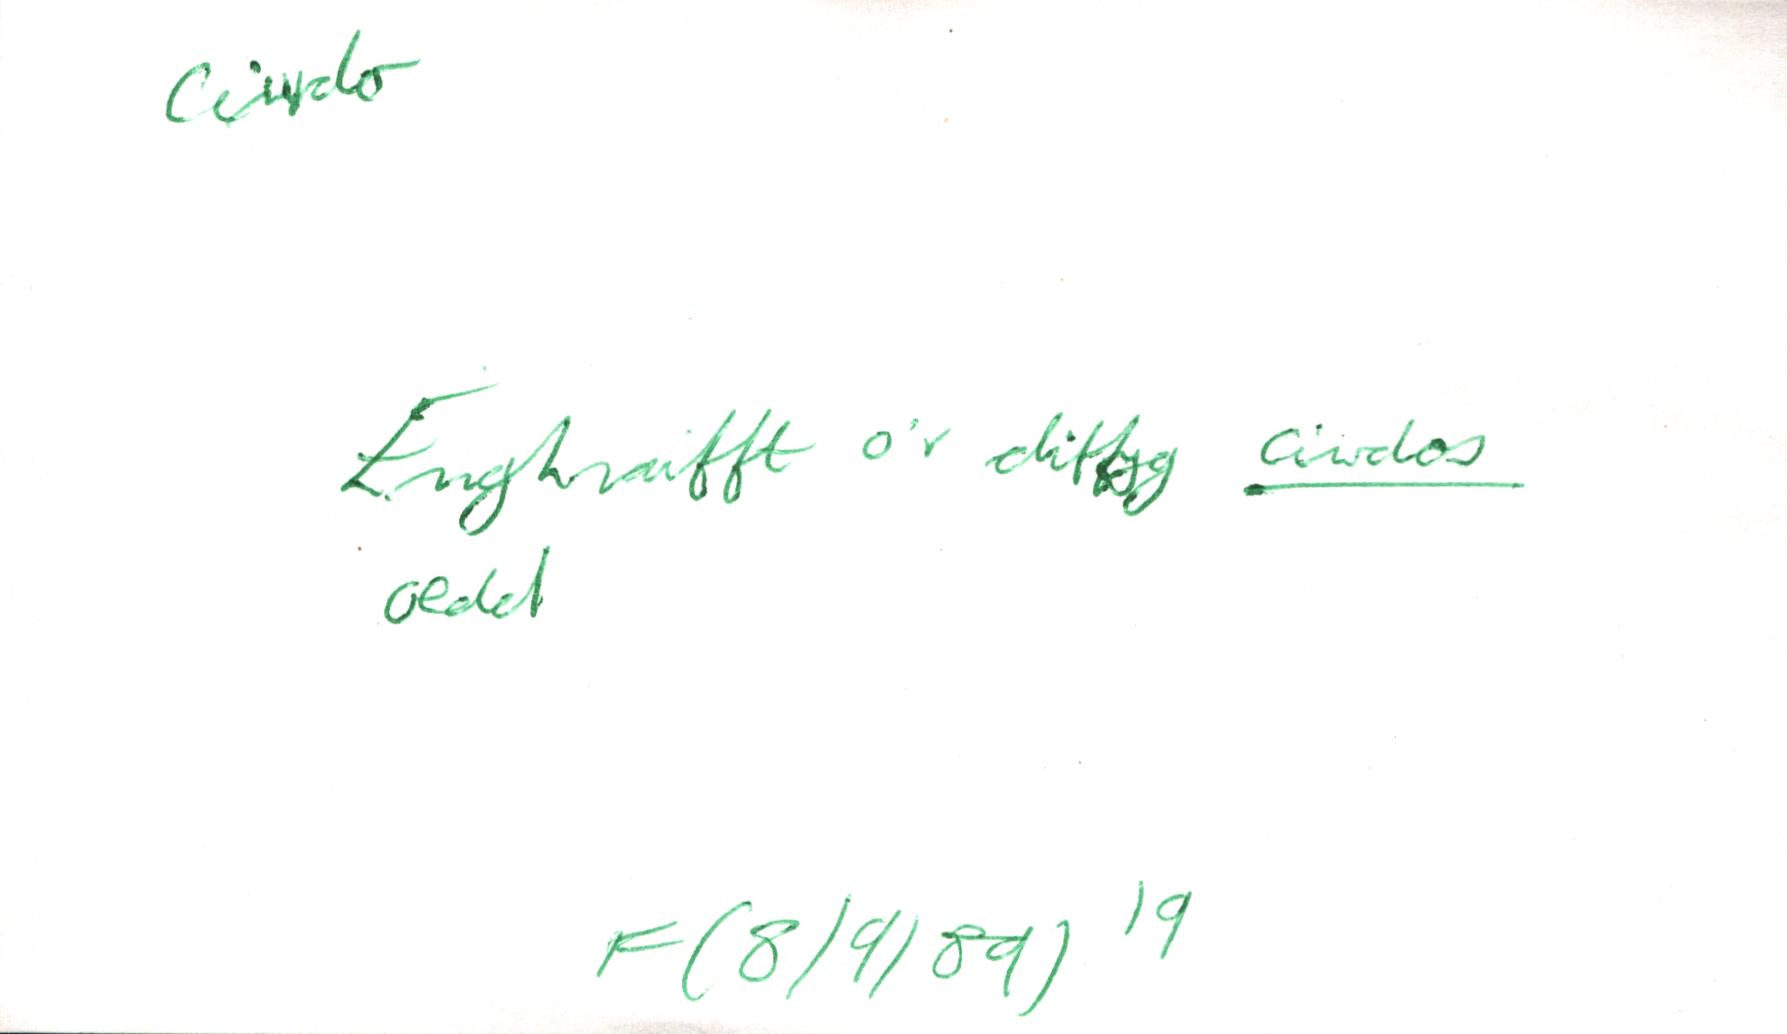 ciwdo
Enghraifft o'r diffyg ciwdos
oedd
F(8/9/89) 19